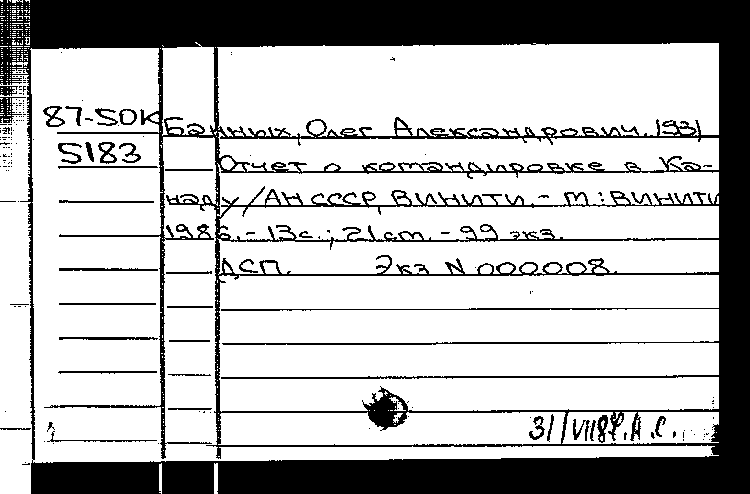 87-SOK Банных, Олег Александрович. 1931
5183 Отчет о командировке в Ка-
наду / АН СССР, ВИНИТИ. - М: ВИНИТИ
1986. - 13с.; 21 cm. - 99 экз.
ДСП. Экз N 000008.
31/VII 87. А.С.